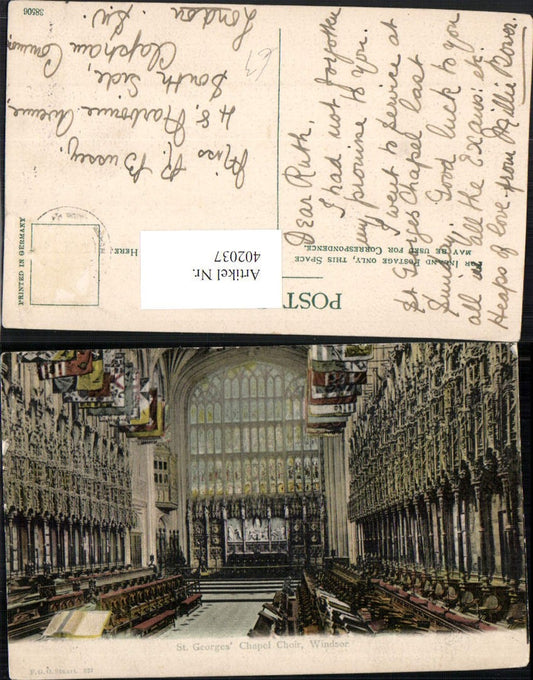 38506
POST
FOR INLAND POSTAGE ONLY, THIS SPACE
MAY BE USED FOR CORRESPONDENCE.
HERE.
PRINTED IN GERMANY
Artikel Nr.
402037
Dear Ruth,
I had not forgotten
my promise to you.
I went to service at
St Georges Chapel last
Sunday. Good luck to you
all in all the Exams: etc.
Heaps of love from Millie Bover.
Miss R. Bussey.
48 Narbonne Avenue,
South Side,
Clapham Common,
London
S.W.
St. Georges' Chapel Choir, Windsor
F.G.O. Stuart. 221